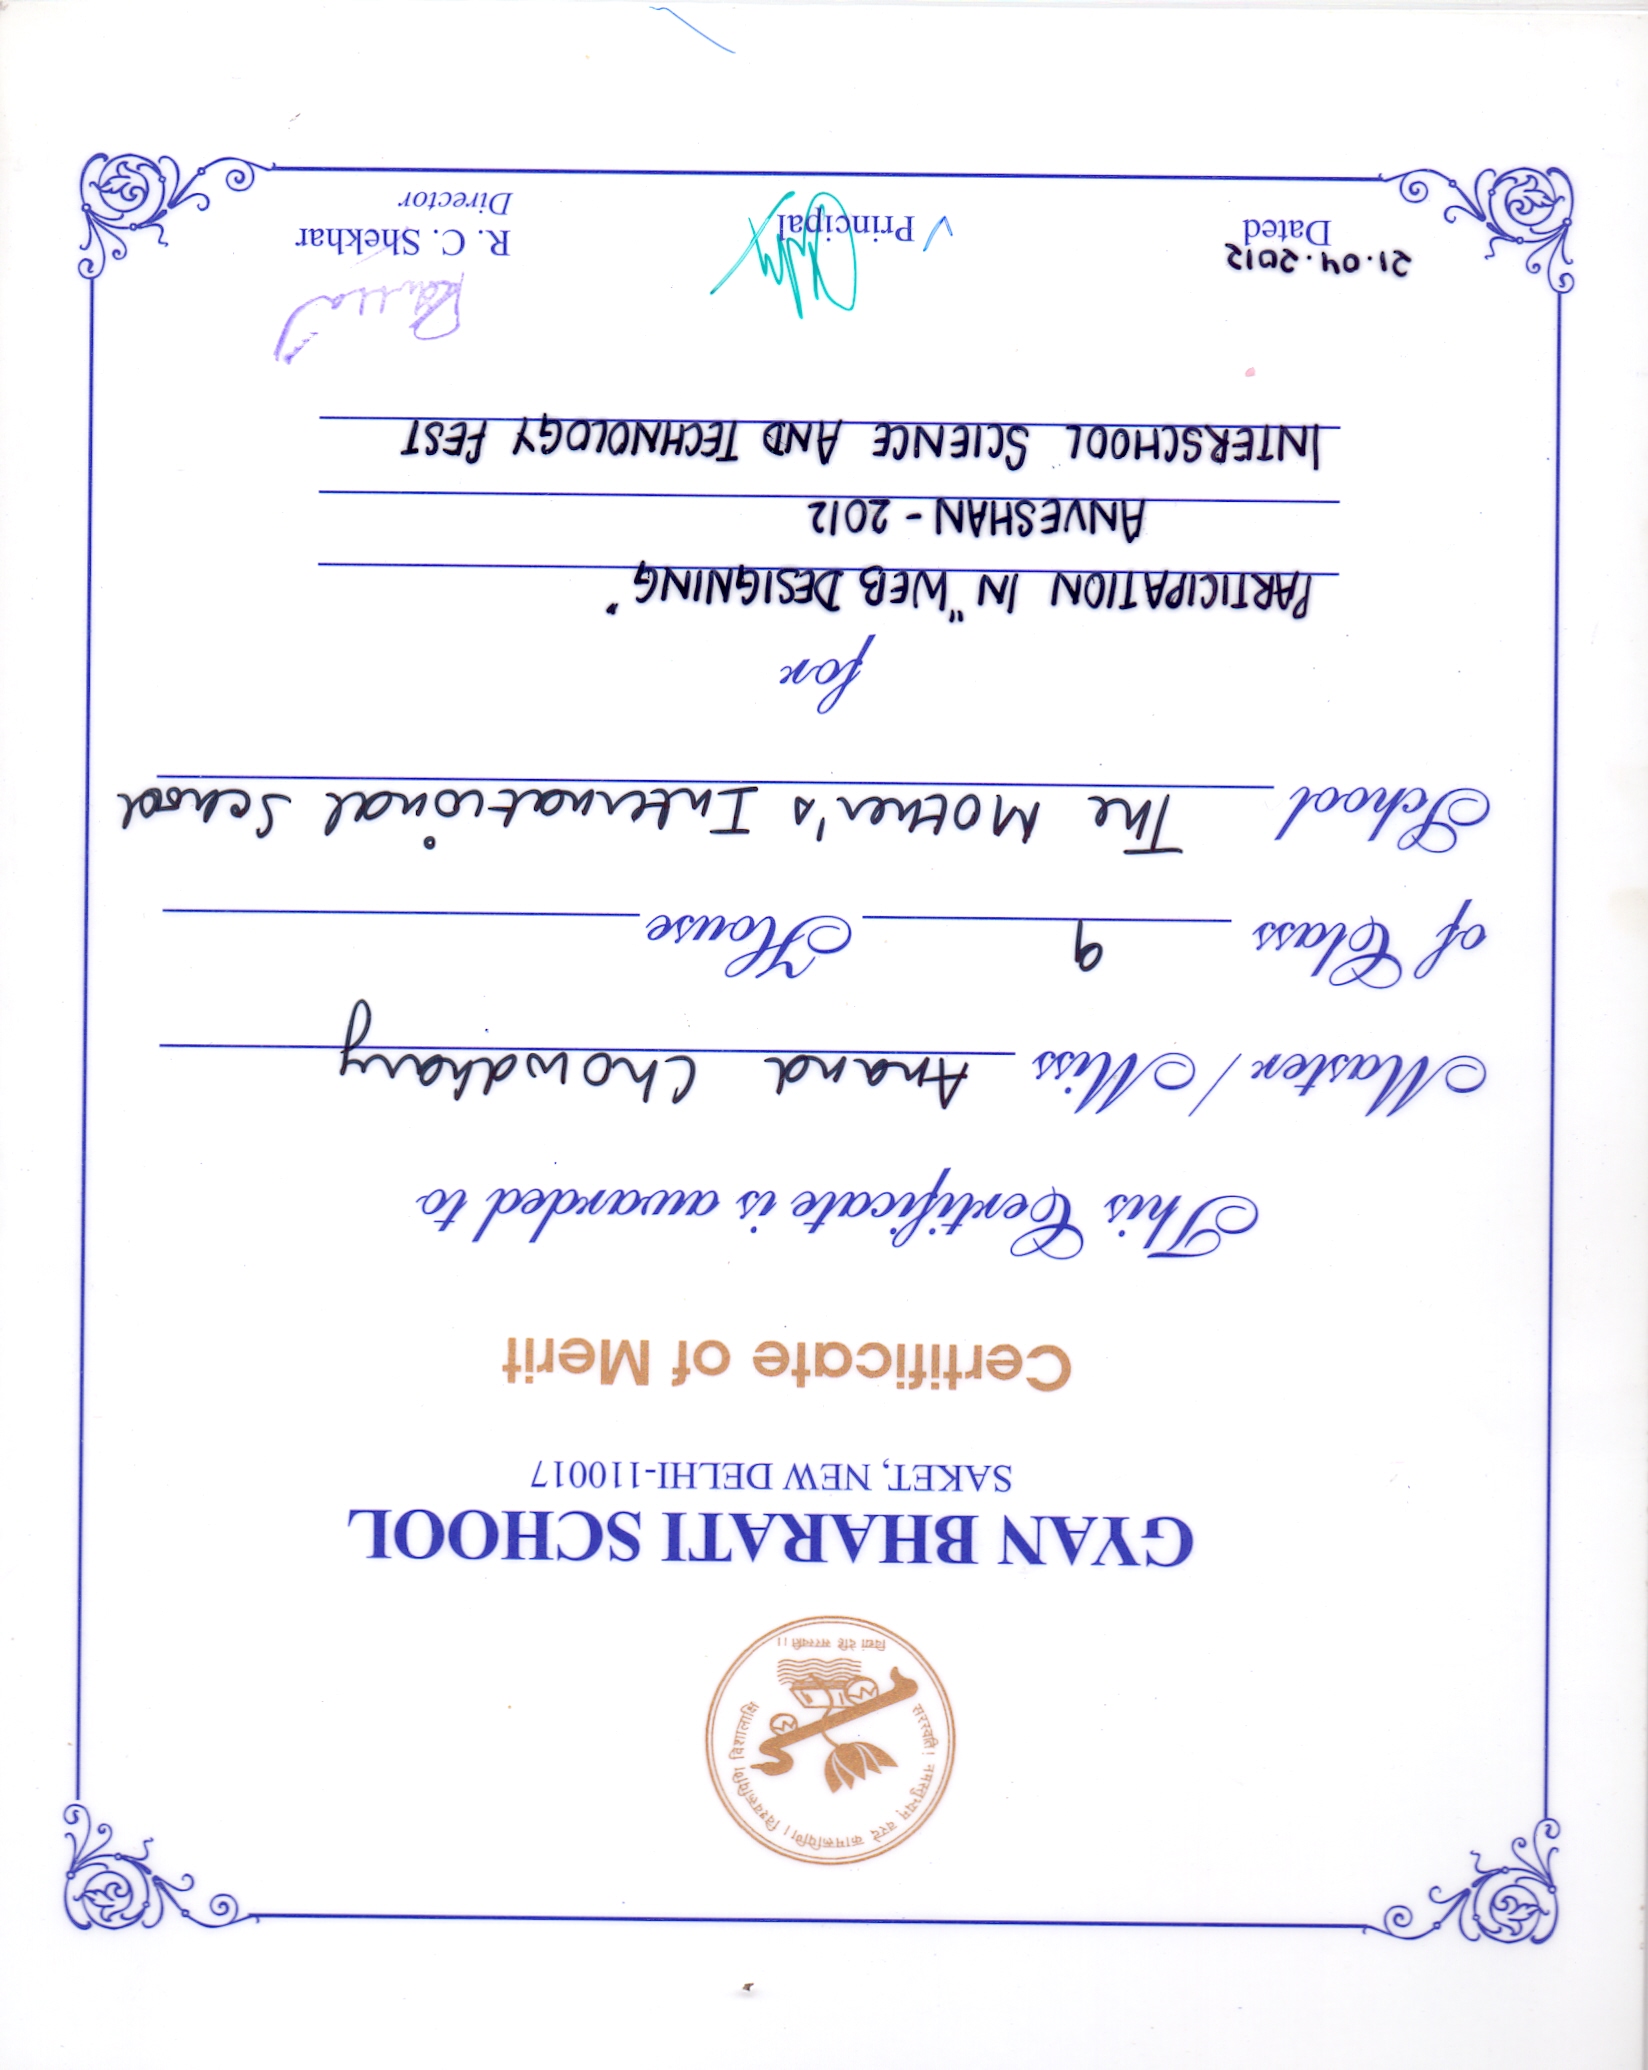 सरस्वति! नमस्तुभ्यम् वरदे कामरूपिणि। विश्वरूपिणि विशालाक्षि
विद्यां देहि सरस्वति।।
GYAN BHARATI SCHOOL
SAKET, NEW DELHI-110017
Certificate of Merit
This Certificate is awarded to
Master / Miss Anand Chowdhary
of Class 9 House
School The Mother's International School
for
PARTICIPATION IN "WEB DESIGNING"
ANVESHAN - 2012
INTERSCHOOL SCIENCE AND TECHNOLOGY FEST
21.04.2012
Dated
✓ Principal
R. C. Shekhar
Director